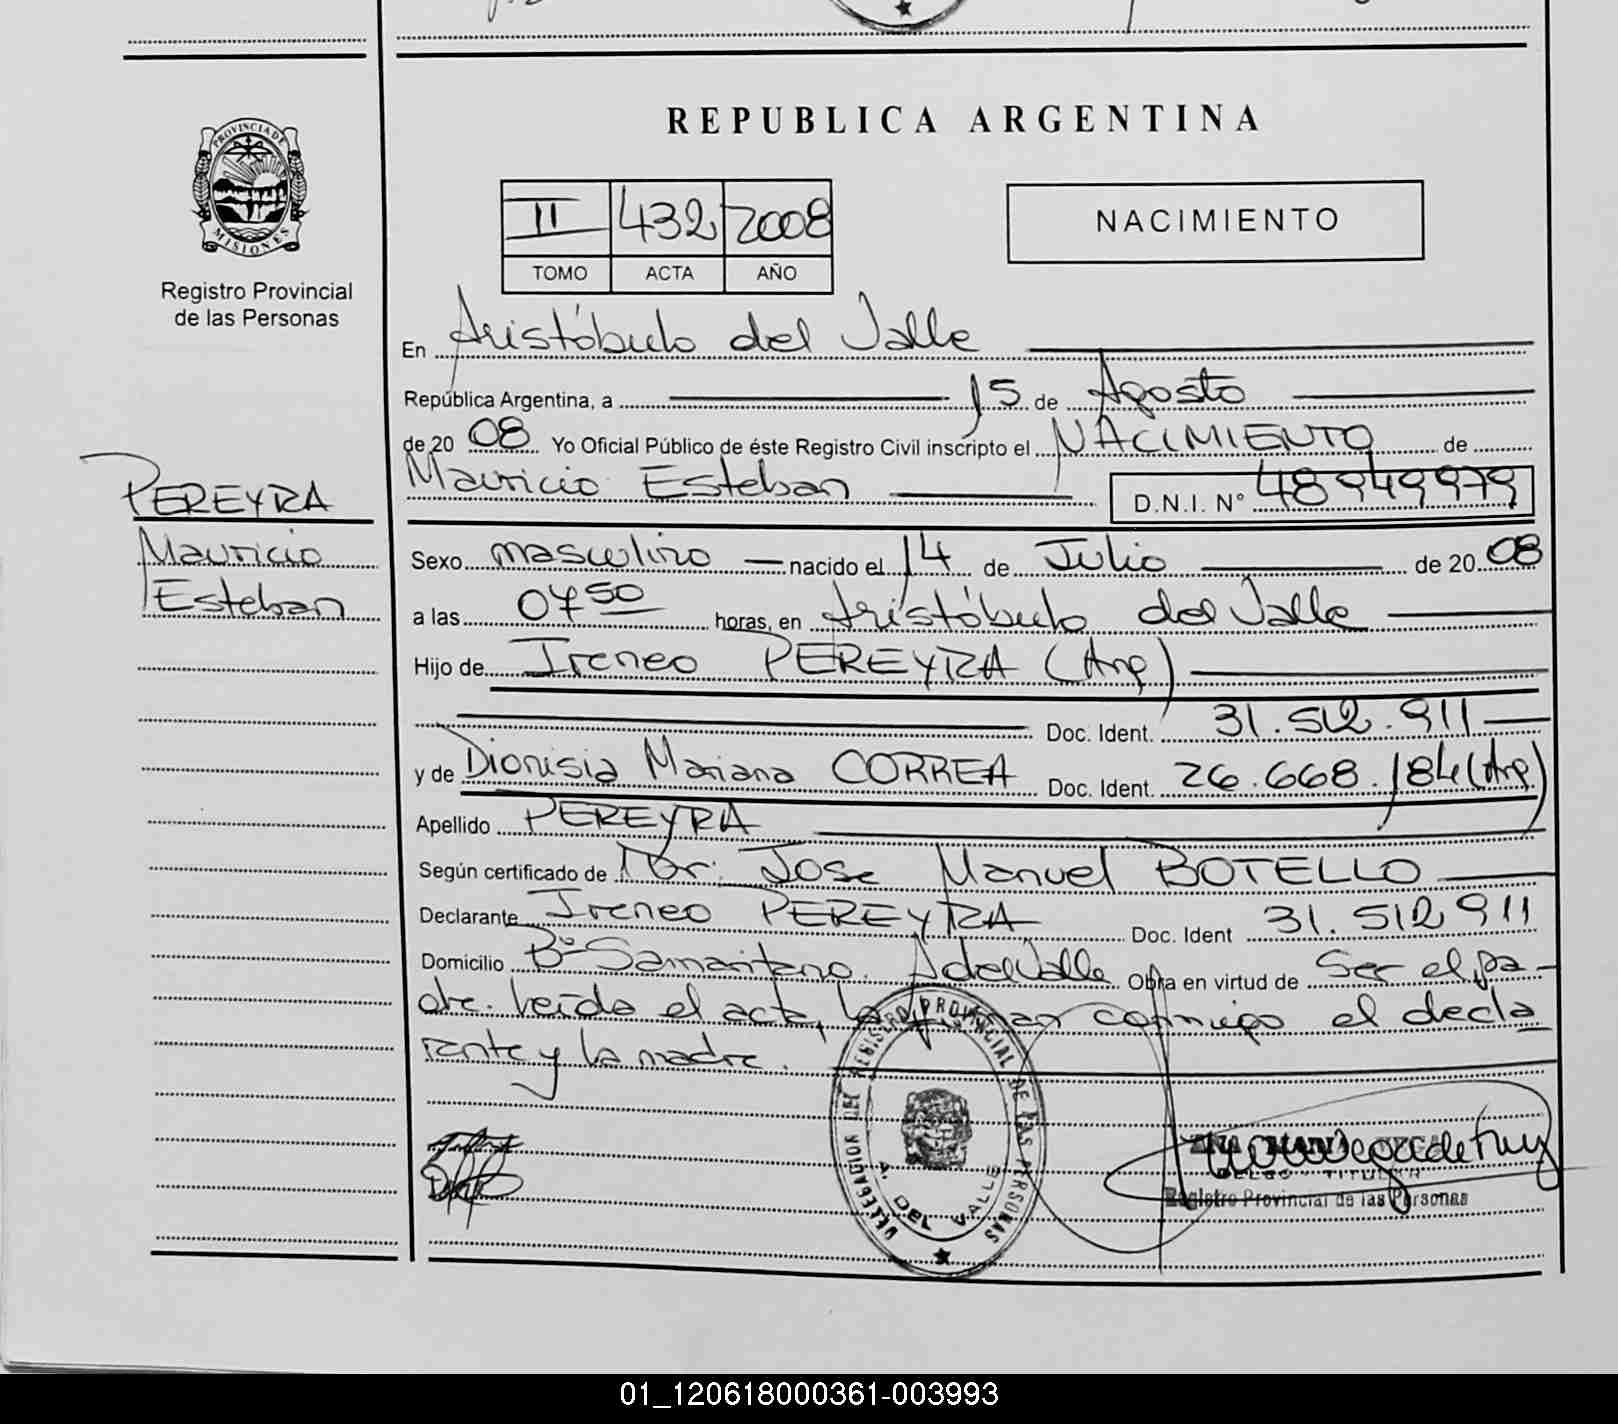 REPUBLICA ARGENTINA
PROVINCIA DE MISIONES
Registro Provincial
de las Personas
II 432 2008
TOMO ACTA AÑO
NACIMIENTO
En Aristóbulo del Valle
República Argentina, a 15 de Agosto
de 20 08 Yo Oficial Público de éste Registro Civil inscripto el NACIMIENTO de
Mauricio Esteban D.N.I. N° 48949979
PEREYRA
Mauricio
Esteban
Sexo masculino nacido el 14 de Julio de 20 08
a las 07 50 horas, en Aristóbulo del Valle
Hijo de Ireneo PEREYRA (Arg)
Doc. Ident. 31.512.911
y de Dionisia Mariana CORREA Doc. Ident. 26.668.184 (Arg)
Apellido PEREYRA
Según certificado de Dr. Jose Manuel BOTELLO
Declarante Ireneo PEREYRA Doc. Ident 31.512911
Domicilio B° Samaritano. A del Valle Obra en virtud de Ser el pa-
dre. leída el acta, la firman conmigo el decla
rante y la madre.
DELEGACION DEL REGISTRO PROVINCIAL DE LAS PERSONAS
A. DEL VALLE
TITULAR
Registro Provincial de las Personas
01_120618000361-003993